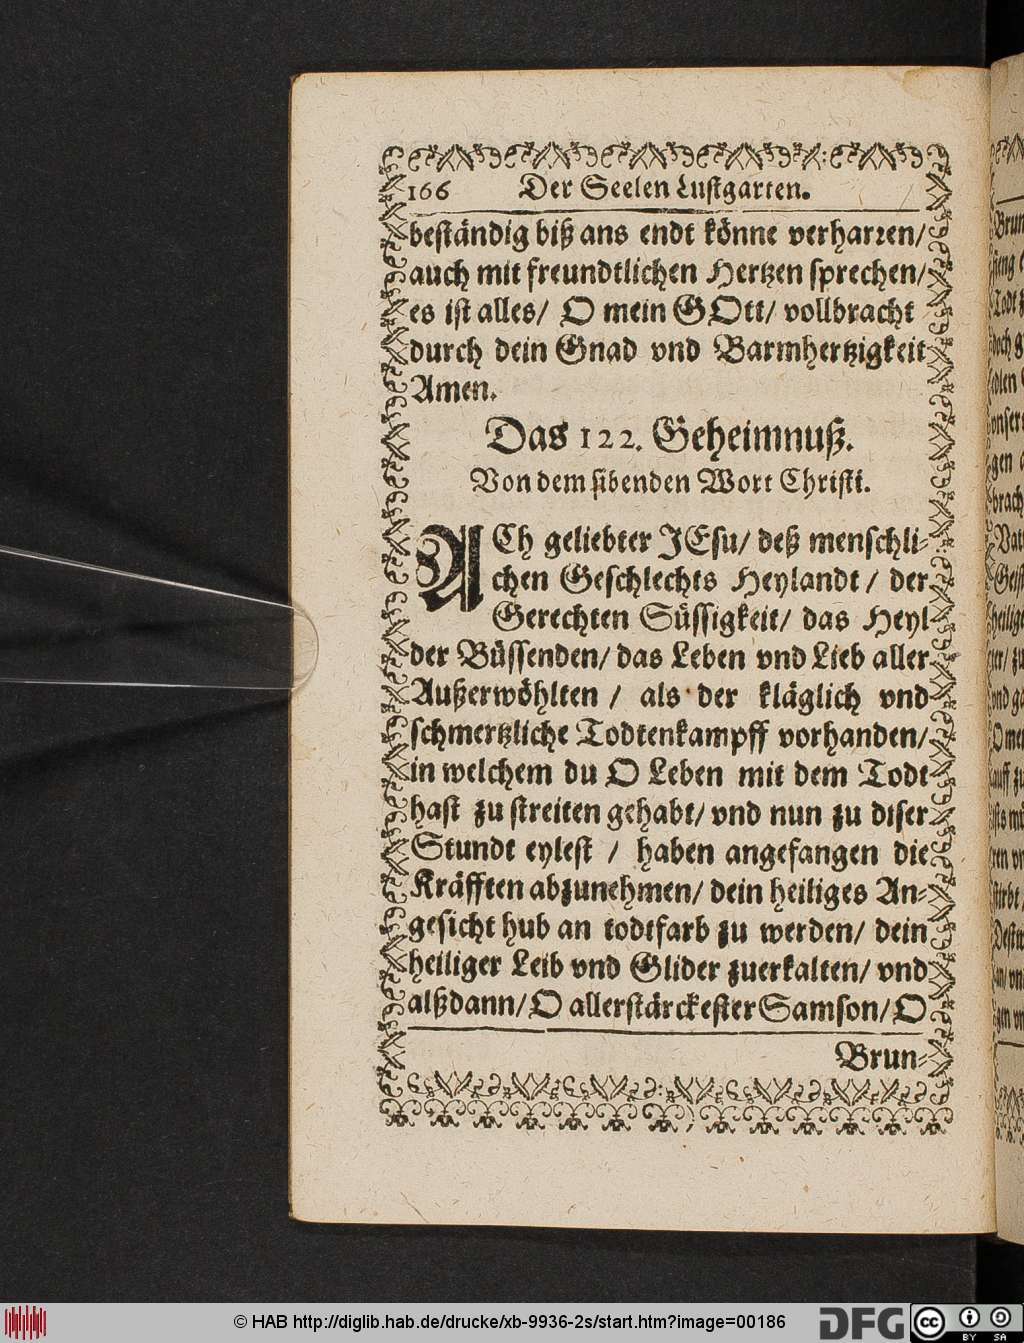 166 Der Seelen Lustgarten.
beständig biß ans endt könne verharren/
auch mit freundtlichen Hertzen sprechen/
es ist alles/ O mein GOtt/ vollbracht
durch dein Gnad vnd Barmhertzigkeit
Amen.
Das 122. Geheimnuß.
Von dem sibenden Wort Christi.
ACh geliebter JEsu/ deß menschli-
chen Geschlechts Heylandt / der
Gerechten Süssigkeit/ das Heyl
der Büssenden/ das Leben vnd Lieb aller
Außerwöhlten / als der kläglich vnd
schmertzliche Todtenkampff vorhanden/
in welchem du O Leben mit dem Todt
hast zu streiten gehabt/ vnd nun zu diser
Stundt eylest / haben angefangen die
Kräfften abzunehmen/ dein heiliges An-
gesicht hub an todtfarb zu werden/ dein
heiliger Leib vnd Glider zuerkalten/ vnd
alßdann/ O allerstärckester Samson/ O
Brun-
© HAB http://diglib.hab.de/drucke/xb-9936-2s/start.htm?image=00186
DFG
cc BY SA